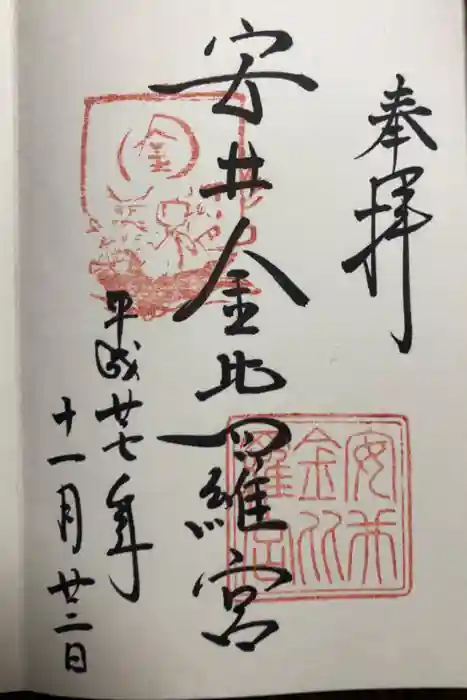 奉拝
安井金比羅宮
平成廿七年
十一月廿二日
金
安井
金比
羅宮